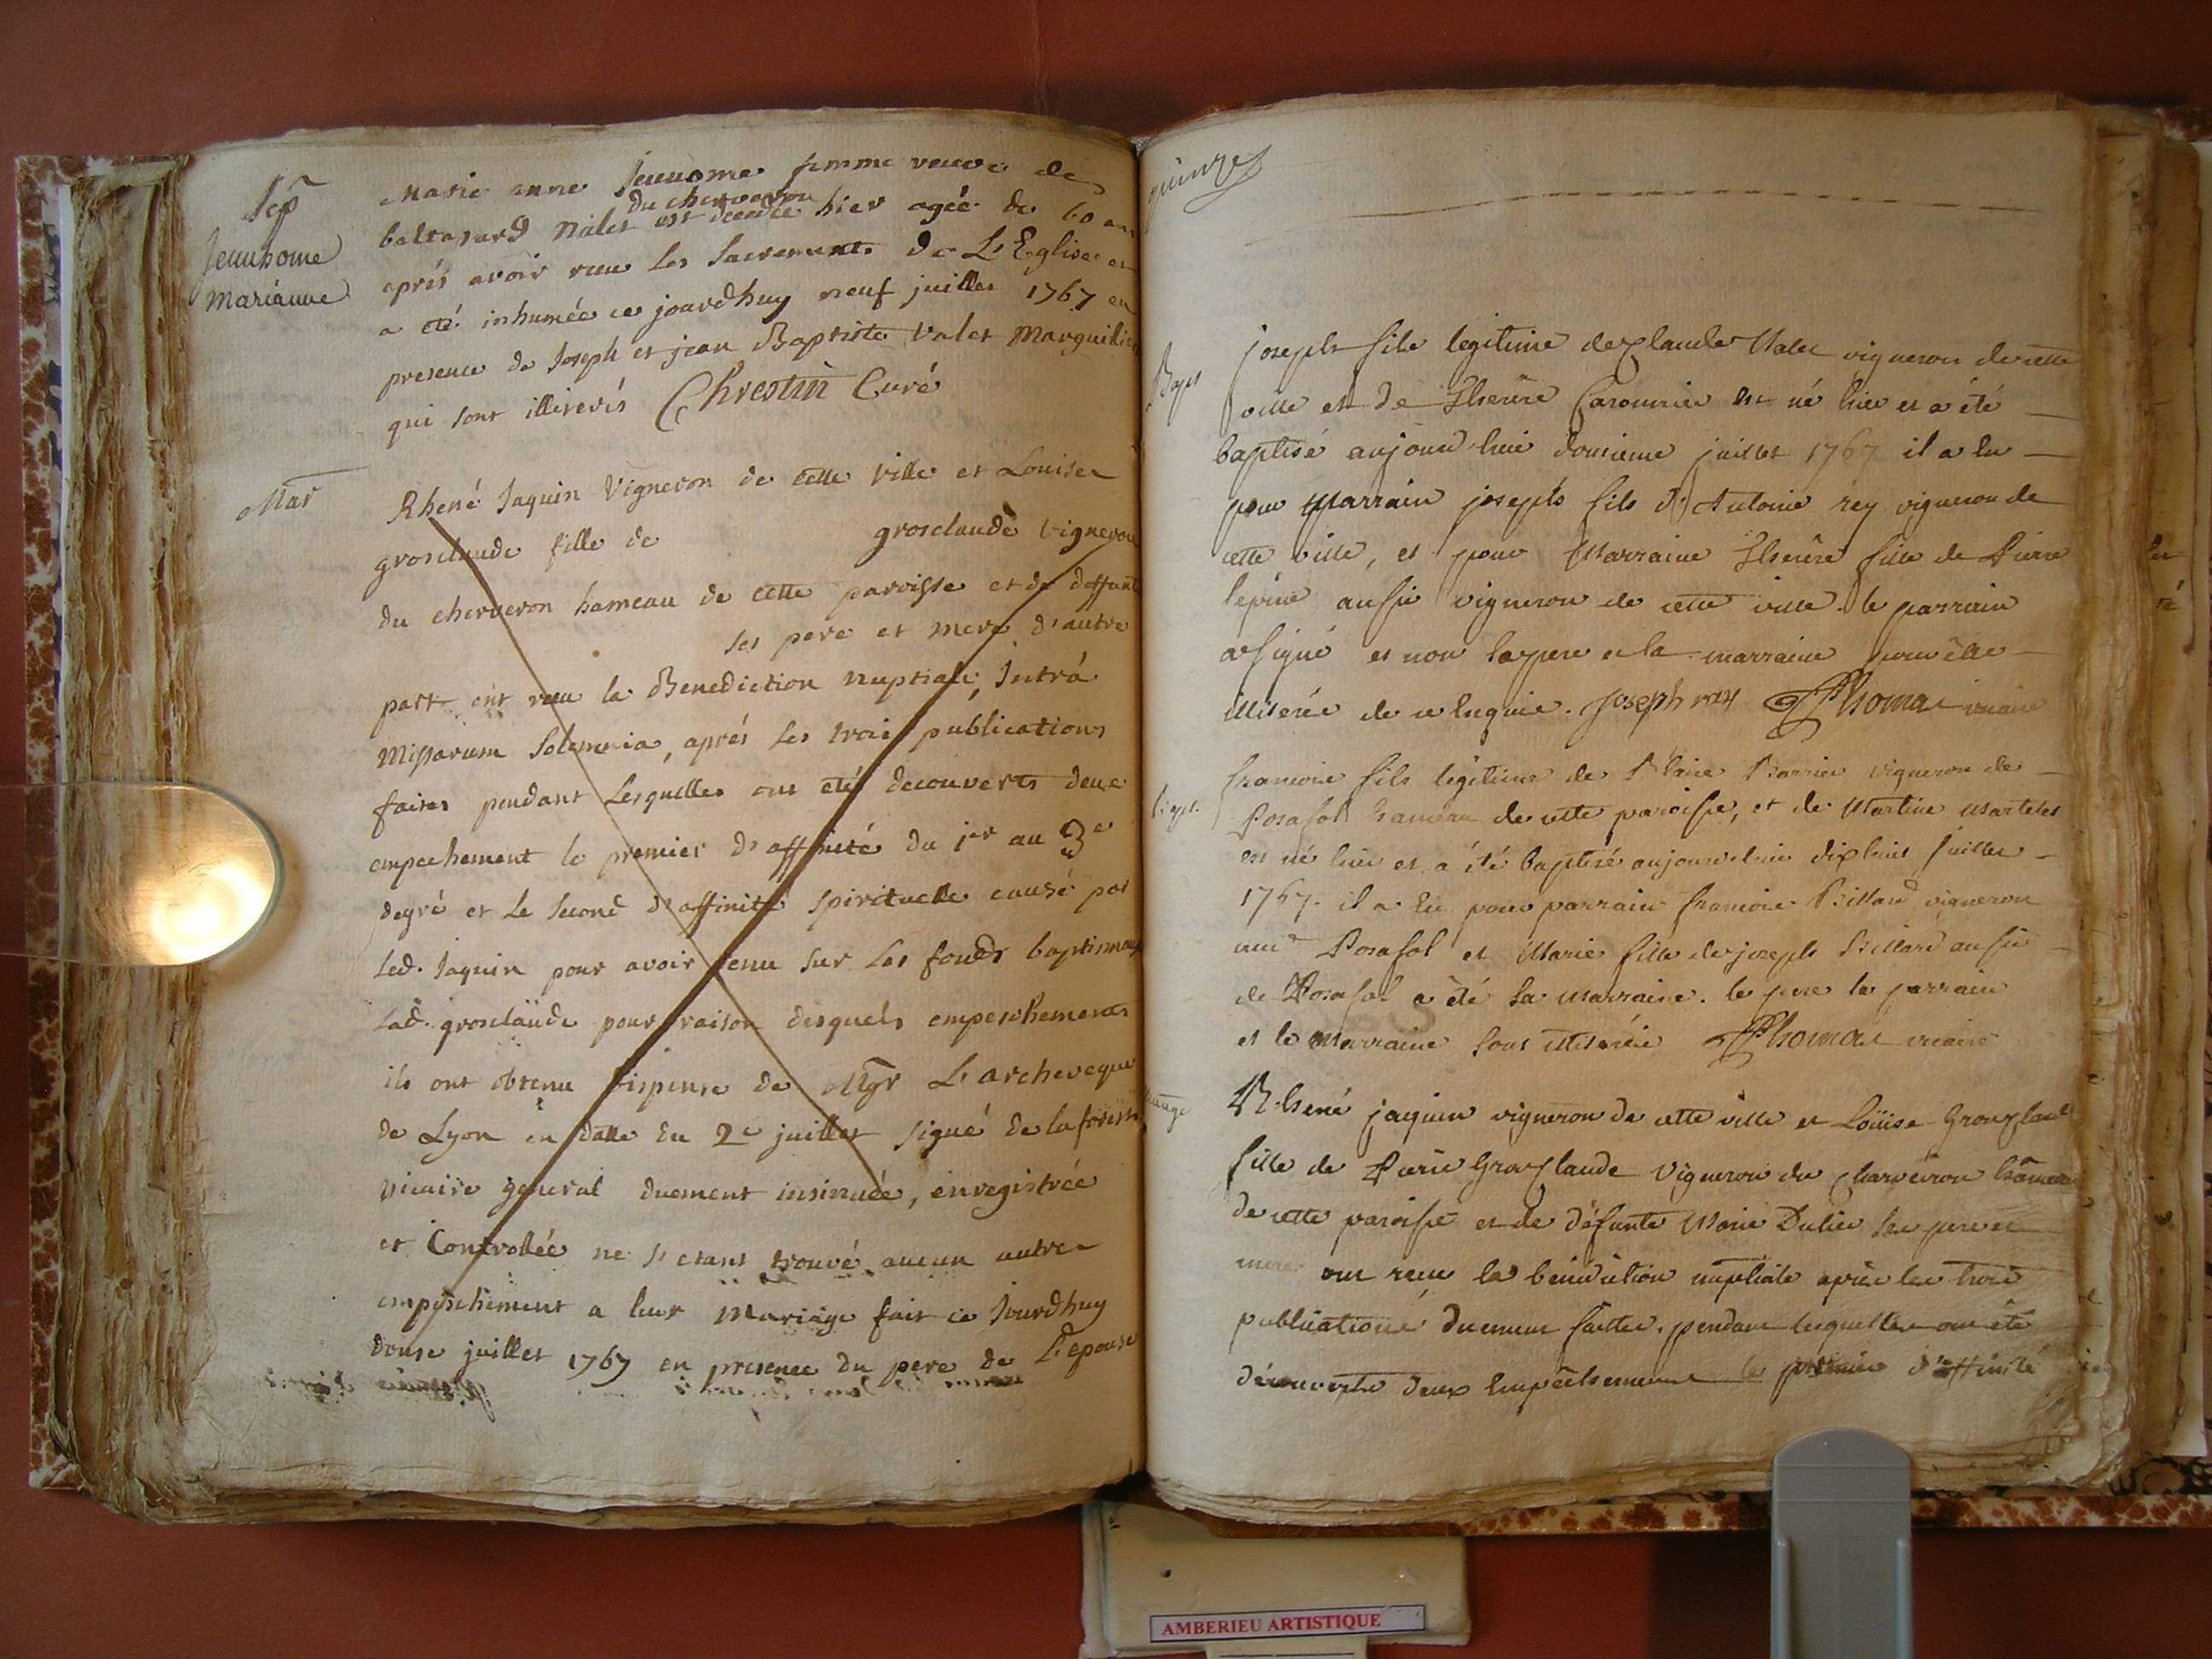 Sep
Jeunhome
Marianne
Marie anne Jeunome femme veuve de
du cherveron
baltasard Nalet est decedée hier agée de 60 an
aprés avoir recu les Sacrements De L'Eglise et
a été inhumée ce jourdhuy neuf juillet 1767 en
presence de Joseph et jean Baptiste Valet Marguillier
qui sont illiterés Chrestin Curé
Mar
Rhené Jaquin Vigneron de cette ville et Louise
grosclaude fille de grosclaude vigneron
du cherveron hameau de cette paroisse et de deffunte
ses pere et mere d'autre
part ont recu la Benediction nuptiale, Intrá
Missarum Solemnia, aprés les trois publications
faites pendant Lesquelles ont eté decouverts deux
empechement le premier d'affinité du 1er au 3e
degré et Le Second d'affinité spirituelle causé par
Led. Jaquin pour avoir tenu sur Les fonds baptismaux
Lad. grosclaude pour raison desquels empeschements
ils ont obtenu dispense de Mgr L'archeveque
de Lyon en datte du 2e juillet signé de la forest
vicaire general duement insinuée, enregistrée
et Controllée ne s'etant trouvé aucun autre
empeschement a leur Mariage fait ce Jourdhuy
douse juillet 1767 en presence du pere de L'epouse
quinze
Bapt
joseph fils legitime de Claude Nalet vigneron de cette
ville et de Therése est né hier et a été
baptisé aujourd'hui dousieme juillet 1767 il a eu
pour Parrain joseph fils d'Antoine rey vigneron de
cette ville, et pour Marraine Therése fille de Pierre
lépine aussi vigneron de cette ville. le parrain
a signé et non le pere et la marraine pour être
illiterés de ce Enquis. Joseph rey Thomas vicaire
Bapt.
francois fils legitime de Blaise Barrier vigneron de
Posafol hameau de cette paroisse, et de Martine Martelet
est né hier et a été baptisé aujourd'hui dix huit juillet
1767. il a eu pour parrain francois Billard vigneron
aud Posafol et Marie fille de joseph Billard aussi
de Posafol a été sa marraine. le pere le parrain
et la marraine sont illiterés Thomas vicaire
Rhené jaquin vigneron de cette ville et Loüise Grosclaude
fille de Pierre Grosclaude Vigneron du Charveiron hameau
de cette paroisse et de défunte Marie Dulier ses pere et
mere ont recu la bénédiction nuptiale aprés les trois
publications duement faittes. pendant lesquelles ont été
découverts deux Empêchements le premier d'affinité
AMBERIEU ARTISTIQUE